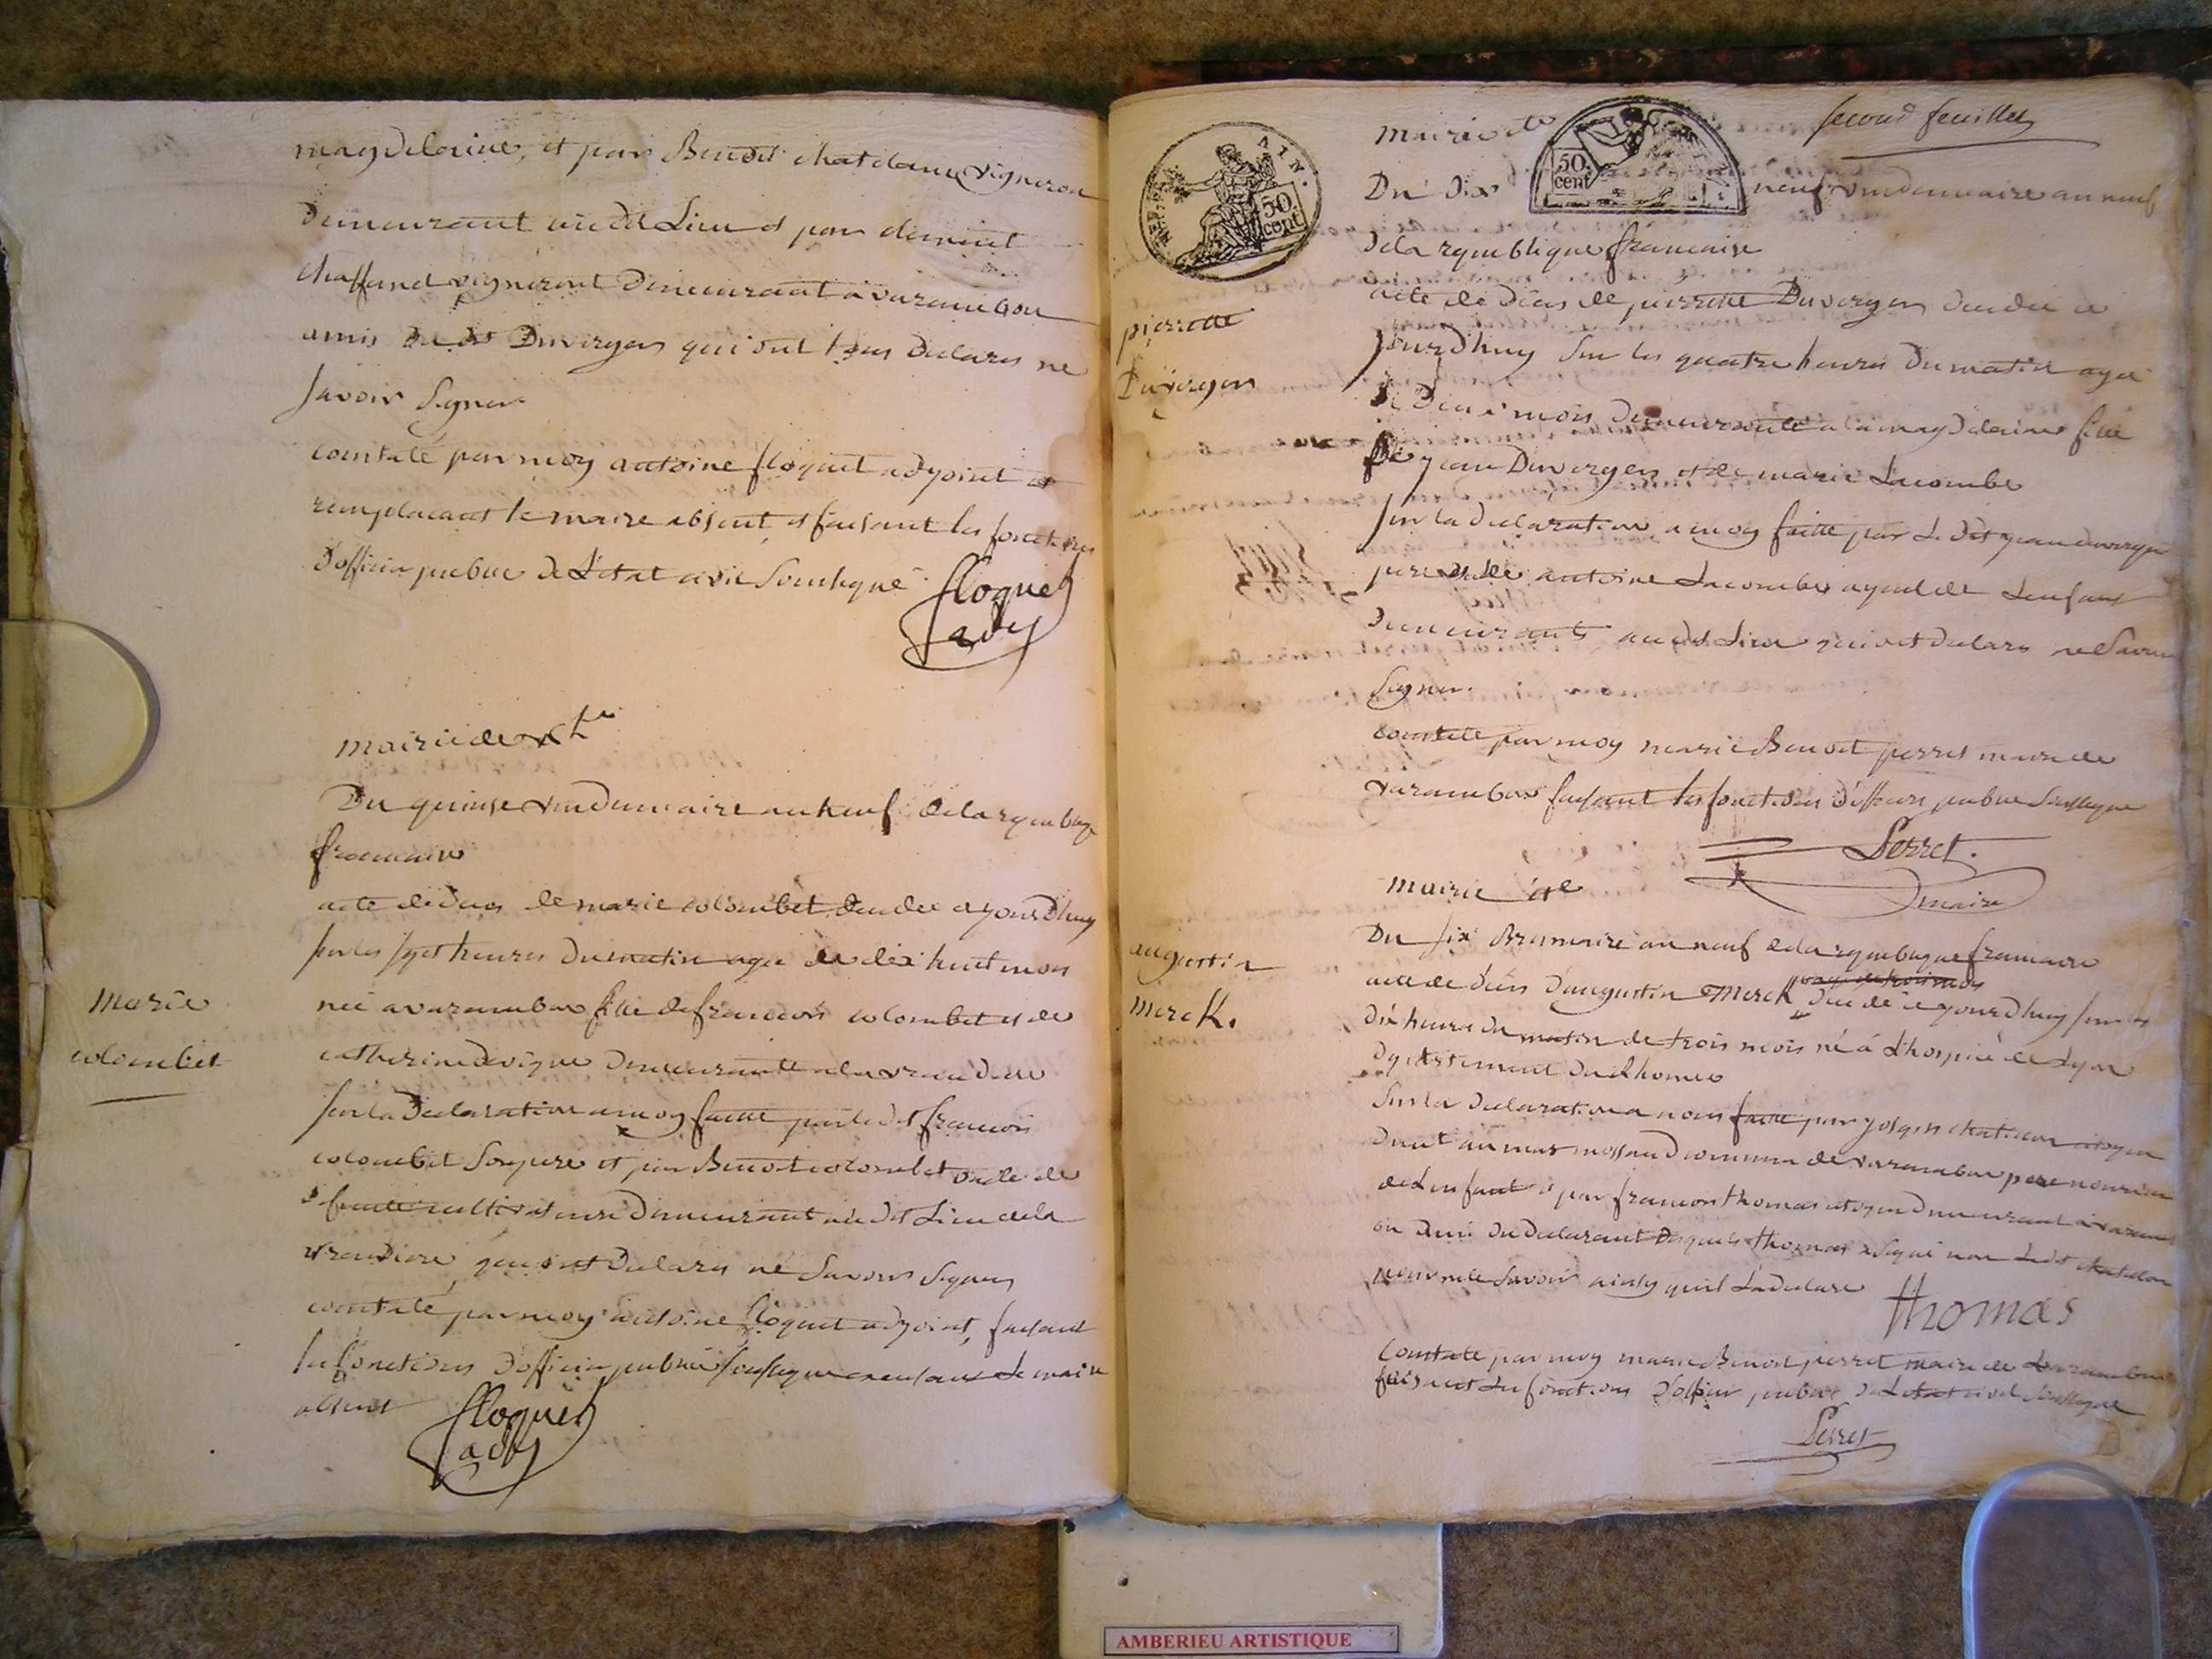 magdelaine, et par Benoit chatelain vigneron
demeurant au dt Lieu et par clement
chaffanel vigneront demeurant a varambon
amis du dt Duvergers qui ont tous declares ne
savoir signer
constaté par moy antoine floquet adjoint et
remplacant le maire absent, et faisant les fonctions
d'officier public de L'etat civil soussigné
floquet
adj
mairie de
Du quinse vendemiaire an neuf de la republiq
francaise
marie
colombet
acte de deces de marie colombet decedee ajourdhuy
sur les sept heures du matin agee de dix huit mois
neé a varambon fille de francois colombet et de
catherine devigne demeurante a la
sur la declaration a moy faitte par le dt francois
colombet son pere et par Benoit colombet oncle de
demeurant au dt Lieu de la
qui ont declares ne savoir signer
constaté par moy antoine floquet adjoint, faisant
les fonctions d'officier public soussigné Le maire
absent
floquet
adj
second feuillet
mairie de
50 cent
AIN.
REP. FRA.
50 cent
Du dix neuf vendemiaire an neuf
de la republique francaise
pierrette
Duvergers
acte de déces de pierrette Duvergers decedee a
jourdhuy sur les quatre heures du matin agee
de deux mois demeurante a la magdelaine fille
de jean Duvergers et de marie Lacombe
sur la declaration a moy faitte par Le dt jean duverger
pere et de antoine Lacombe ayeul de L'enfant
demeurants au dt Lieu qui ont declares ne savoir
signer.
constaté par moy marie Benoit perret maire de
varambon faisant les fonctions d'officier public soussigné
Perret.
maire
mairie de
Du six Brumaire an neuf de la republique francaise
augustin
merck.
acte de déces d'augustin Merck decedé ce jourdhuy sur les
dix heures du matin de trois mois né à L'hospice de Lyon
departement du Rhone
sur la declaration a nous faitte par joseph chatelon citoyen
dem.t au mas commune de varambon pere nouricier
de L'enfant et par francois thomas citoyen demeurant a varamb
on ami du declarant Lesquels thomas a signé non Ledt chatelon
pour ne le savoir ainsy quil L'a declaré
thomas
Constaté par moy marie Benoit perret maire de varambon
faisant les fonctions d'officier public de L'etat civil soussigné
Perret
AMBERIEU ARTISTIQUE